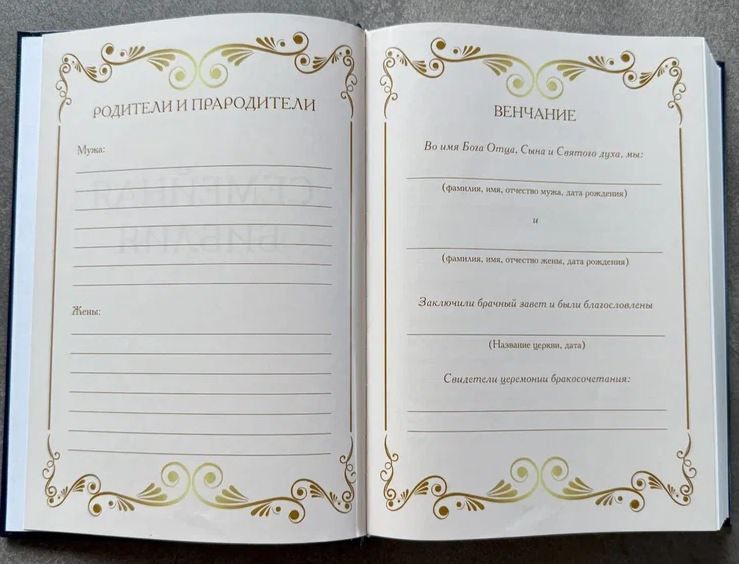 РОДИТЕЛИ И ПРАРОДИТЕЛИ
Мужа:
СЕМЕЙНАЯ
БИБЛИЯ
Жены:
ВЕНЧАНИЕ
Во имя Бога Отца, Сына и Святого духа, мы:
(фамилия, имя, отчество мужа, дата рождения)
и
(фамилия, имя, отчество жены, дата рождения)
Заключили брачный завет и были благословлены
(Название церкви, дата)
Свидетели церемонии бракосочетания: